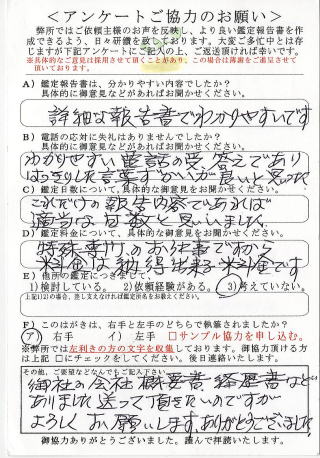 ＜アンケートご協力のお願い＞
弊所ではご依頼主様のお声を反映し、より良い鑑定報告書を作
成できるよう、日々研鑽を致しております。大変ご多忙中とは存
じますが下記アンケートにご記入の上、ご返送頂ければ幸いです。
※具体的なご意見は採用させて頂くことがあり、この場合は薄謝をご進呈させて
頂いております。
A）鑑定報告書は、分かりやすい内容でしたか？
具体的に御意見などがあればお聞かせください。
詳細な報告書でわかりやすいです
B）電話の応対に失礼はありませんでしたか？
具体的に御意見などがあればお聞かせください。
わかりやすい電話の受け答えであり
はっきりした言葉づかいが良いと思った
C）鑑定日数について、具体的な御意見をお聞かせください。
これだけの報告内容であれば
適当な日数と思いました
D）鑑定料金について、具体的な御意見をお聞かせください。
特殊専門のお仕事ですから
料金は納得出来る料金です
E）他所の鑑定につきまして、
1)検討している。 2)依頼経験がある。 3)考えていない。
上記1)2)の場合、差し支えなければ鑑定所名をお教えください。
F）このはがきは、右手と左手のどちらで執筆されましたか？
ア）右手 イ）左手 □サンプル協力を申し込む。
※弊所では左利きの方の文字を収集しております。御協力頂ける方
は上部 □にチェックをしてください。後日連絡いたします。
その他、ご要望などなんでもご記入下さい。
御社の会社概要書・経歴書など
ありました送って頂きたいのですが
よろしくお願いします。ありがとうございました
御協力ありがとうございました。謹んで拝読いたします。